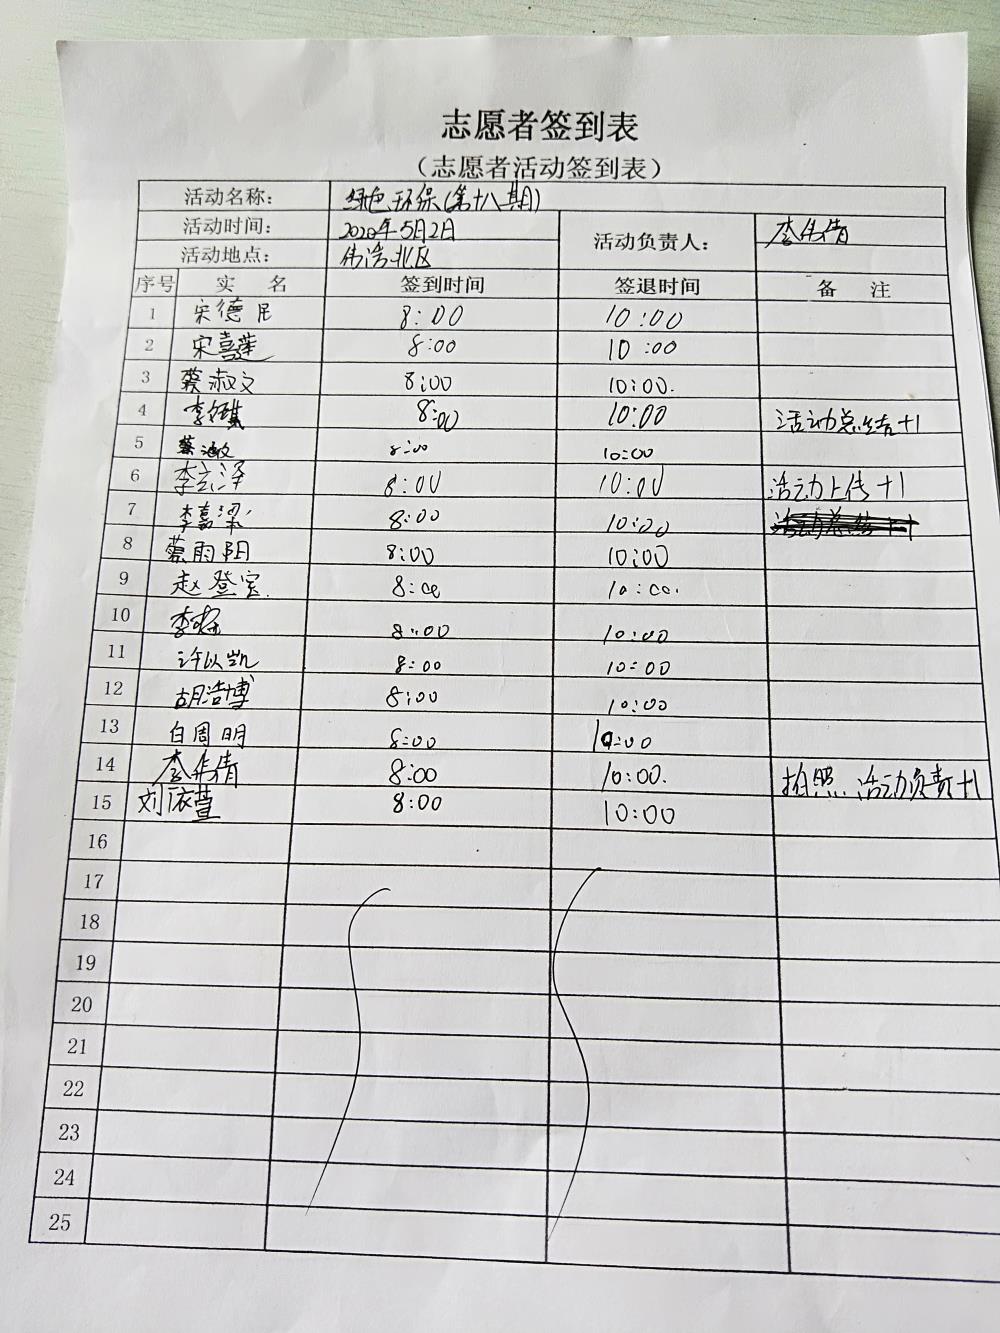 志愿者签到表
（志愿者活动签到表）
活动名称： 绿色环保(第十八期)
活动时间： 2020年5月2日 活动负责人： 李伟倩
活动地点： 伟浩北区
序号 实 名 签到时间 签退时间 备 注
1 宋德民 8:00 10:00
2 宋喜莲 8:00 10:00
3 蔡淑文 8:00 10:00.
4 李 8:00 10:00 活动总结+1
5 蔡 8:00 10:00
6 李立泽 8:00 10:00 活动上传+1
7 李嘉梁 8:00 10:00
8 蔡雨阳 8:00 10:00
9 赵登宝. 8:00 10:00.
10 李 8:00 10:00
11 许以凯 8:00 10:00
12 胡浩博 8:00 10:00
13 白周明 8:00 10:00
14 李伟倩 8:00 10:00. 拍照.活动负责+1
15 刘依萱 8:00 10:00
16
17
18
19
20
21
22
23
24
25